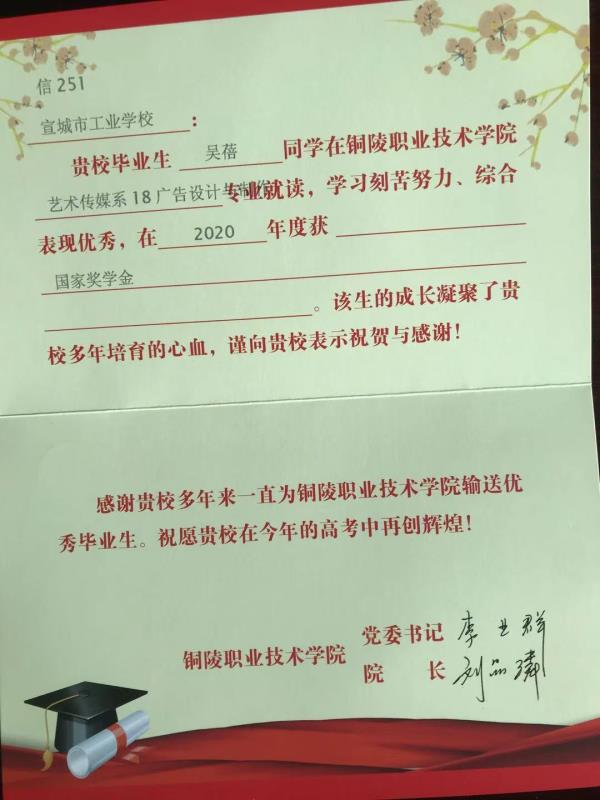 信 251
宣城市工业学校：
贵校毕业生 吴蓓 同学在铜陵职业技术学院
艺术传媒系 18 广告设计与制作专业就读，学习刻苦努力、综合
表现优秀，在 2020 年度获
国家奖学金
。该生的成长凝聚了贵
校多年培育的心血，谨向贵校表示祝贺与感谢！
感谢贵校多年来一直为铜陵职业技术学院输送优
秀毕业生。祝愿贵校在今年的高考中再创辉煌！
铜陵职业技术学院 党委书记 李业群
院 长 刘品璘